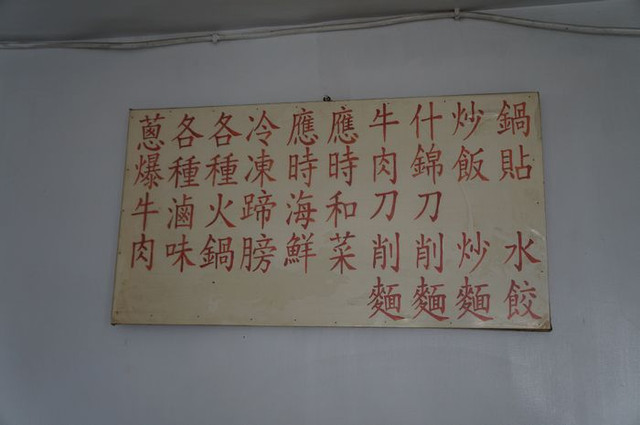 鍋貼 水餃
炒飯 炒麵
什錦刀削麵
牛肉刀削麵
應時和菜
應時海鮮
冷凍蹄膀
各種火鍋
各種滷味
蔥爆牛肉